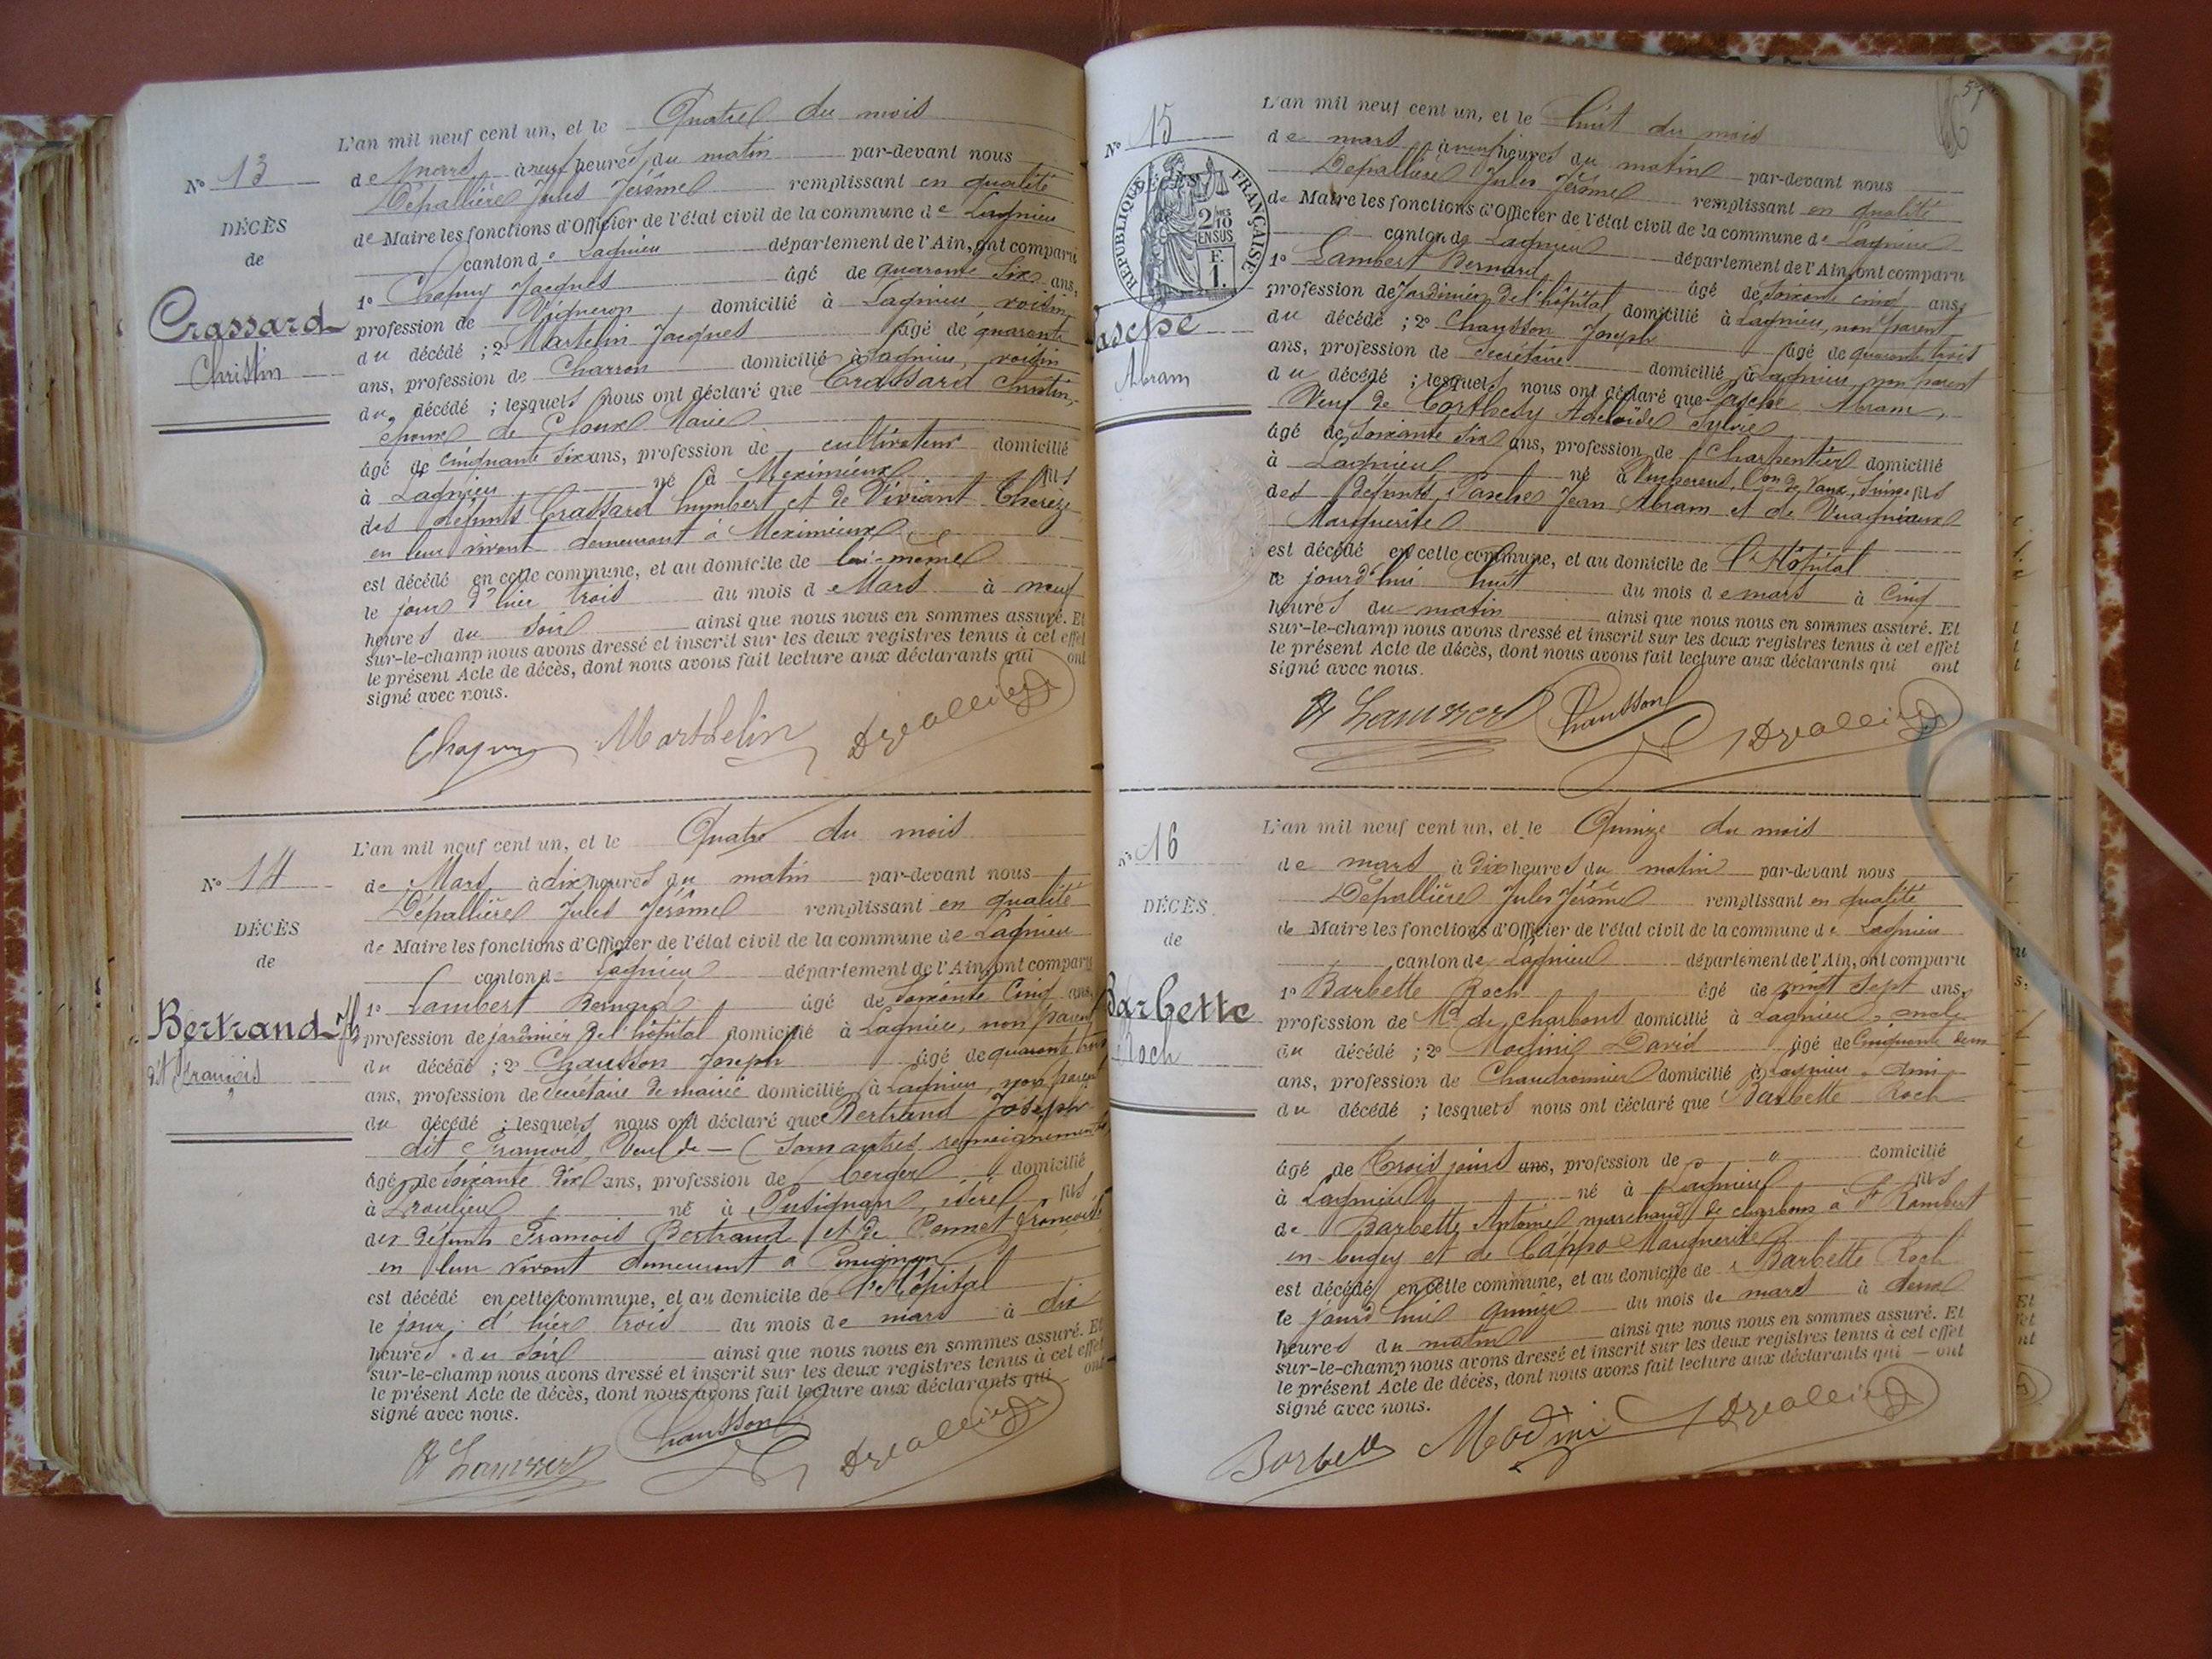 L'an mil neuf cent un, et le Quatre du mois
N° 13
de Mars à neuf heures du matin par-devant nous
Dépallière Jules Jérôme remplissant en qualité
DÉCÈS
de Maire les fonctions d'Officier de l'état civil de la commune de Lagnieu
de
canton de Lagnieu département de l'Ain, ont comparu
1° Chapuy Jacques âgé de quarante six ans,
Crassard
Christin
profession de Vigneron domicilié à Lagnieu, voisin
du décédé ; 2° Martelin Jacques âgé de quarante
ans, profession de Charron domicilié à Lagnieu, voisin
du décédé ; lesquels nous ont déclaré que Crassard Christin,
époux de Choux Marie
âgé de cinquante six ans, profession de cultivateur domicilié
à Lagnieu né à Meximieux fils
des défunts Crassard humbert et de Viviant Thereze
en leur vivant demeurant à Meximieux
est décédé en cette commune, et au domicile de lui-même
le jour d'hier trois du mois de Mars à neuf
heures du soir ainsi que nous nous en sommes assuré. Et
sur-le-champ nous avons dressé et inscrit sur les deux registres tenus à cet effet
le présent Acte de décès, dont nous avons fait lecture aux déclarants qui ont
signé avec nous.
Chapuy Marthelin Depallière
L'an mil neuf cent un, et le Quatre du mois
N° 14
de Mars à dix heures du matin par-devant nous
Dépallière Jules Jérôme remplissant en qualité
DÉCÈS
de Maire les fonctions d'Officier de l'état civil de la commune de Lagnieu
de
canton de Lagnieu département de l'Ain, ont comparu
1° Lambert Bernard âgé de soixante cinq ans,
Bertrand Jh
dit François
profession de jardinier de l'hôpital domicilié à Lagnieu, non parent
du décédé ; 2° Chausson Joseph âgé de quarante trois
ans, profession de Secrétaire de mairie domicilié à Lagnieu, non parent
du décédé ; lesquels nous ont déclaré que Bertrand Joseph
dit François, Veuf de — (sans autres renseignements
âgé de soixante dix ans, profession de berger domicilié
à Proulieu né à Pusignan, isère, fils
des défunts François Bertrand et de Ponnet françoise
en leur vivant demeurant à Pusignan
est décédé en cette commune, et au domicile de l'Hôpital
le jour d'hier trois du mois de mars à dix
heures du soir ainsi que nous nous en sommes assuré. Et
sur-le-champ nous avons dressé et inscrit sur les deux registres tenus à cet effet
le présent Acte de décès, dont nous avons fait lecture aux déclarants qui ont
signé avec nous.
Chausson Depallière
57
L'an mil neuf cent un, et le huit du mois
N° 15
de mars à neuf heures du matin par-devant nous
Depallière Jules Jérôme remplissant en qualité
RÉPUBLIQUE FRANÇAISE
2/10 EN SUS
F. 1.
de Maire les fonctions d'Officier de l'état civil de la commune de Lagnieu
canton de Lagnieu département de l'Ain, ont comparu
1° Lambert Bernard âgé de soixante cinq ans,
profession de Jardinier de l'hôpital, domicilié à Lagnieu, non parent
Pasche
Abram
du décédé ; 2° Chausson Joseph âgé de quarante trois
ans, profession de Secrétaire domicilié à Lagnieu, non parent
du décédé ; lesquels nous ont déclaré que Pasche Abram,
Veuf de Corthesy Adelaïde Sylvie
âgé de soixante six ans, profession de Charpentier domicilié
à Lagnieu né à Vucherens, Con de Vaux, Suisse fils
des défunts Pasche Jean Abram et de Vuagniaux
Marguerite
est décédé en cette commune, et au domicile de l'Hôpital
le jourd'hui huit du mois de mars à cinq
heures du matin ainsi que nous nous en sommes assuré. Et
sur-le-champ nous avons dressé et inscrit sur les deux registres tenus à cet effet
le présent Acte de décès, dont nous avons fait lecture aux déclarants qui ont
signé avec nous.
Chausson Depallière
L'an mil neuf cent un, et le Quinze du mois
N° 16
de mars à dix heures du matin par-devant nous
Dépallière Jules Jérôme remplissant en qualité
DÉCÈS
de Maire les fonctions d'Officier de l'état civil de la commune de Lagnieu
de
canton de Lagnieu département de l'Ain, ont comparu
1° Barbette Roch âgé de vingt sept ans,
Barbette
Roch
profession de Md de charbons domicilié à Lagnieu, oncle
du décédé ; 2° Modini David âgé de cinquante deux
ans, profession de Chaudronnier domicilié à Lagnieu, ami
du décédé ; lesquels nous ont déclaré que Barbette Roch
âgé de Trois jours ans, profession de " domicilié
à Lagnieu né à Lagnieu fils
de Barbette Antoine marchand de charbons à St Rambert
en-bugey et de Cappo Marguerite
est décédé en cette commune, et au domicile de Barbette Roch
le jourd'hui quinze du mois de mars à deux
heures du matin ainsi que nous nous en sommes assuré. Et
sur-le-champ nous avons dressé et inscrit sur les deux registres tenus à cet effet
le présent Acte de décès, dont nous avons fait lecture aux déclarants qui — ont
signé avec nous.
Barbette Modini Depallière